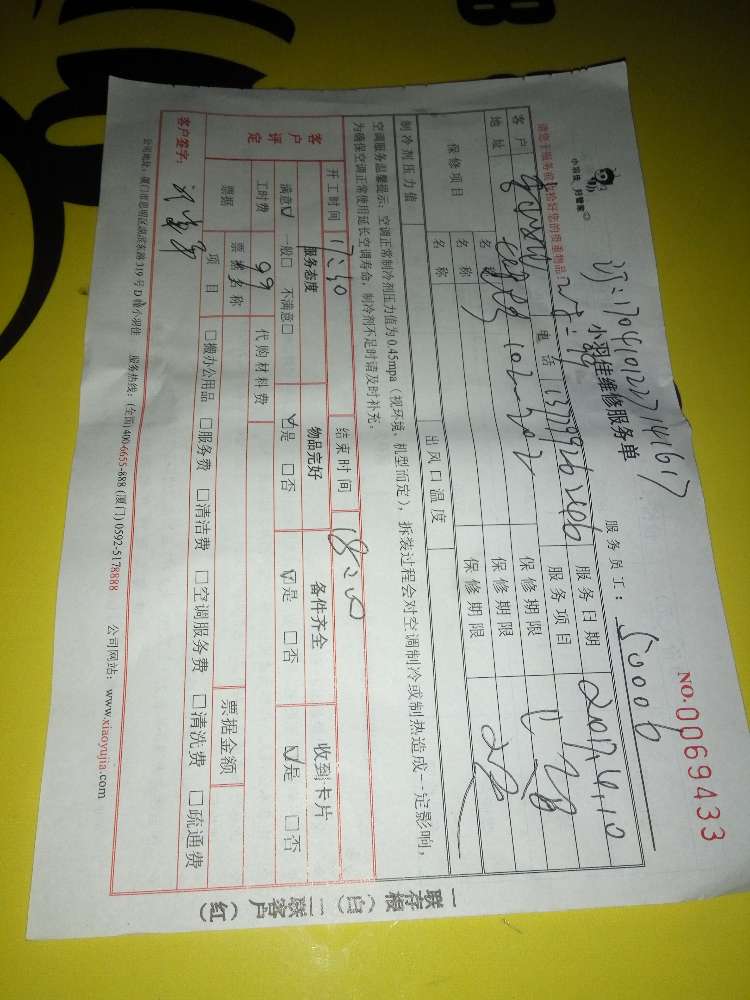 订:1704101227141617
NO.0069433
小羽佳 好管家
小羽佳维修服务单
服务员工: S0006
请您于服务前收捡好您的贵重物品!
客户
电话
服务日期 2017.4.10
地址
102-302
服务项目
保修项目
名称
保修期限
名称
保修期限
名称
保修期限
制冷剂压力值
出风口温度
空调服务温馨提示:空调正常制冷剂压力值为0.45mpa(视环境、机型而定),拆装过程会对空调制冷或制热造成一定影响,
为确保空调正常使用延长空调寿命,制冷剂不足时请及时补充。
开工时间 17:40
结束时间 18:20
客户评定
服务态度
物品完好
备件齐全
收到卡片
满意☑ 一般□ 不满意□
☑是 □否
☑是 □否
☑是 □否
工时费 99
代购材料费
票据
票据名称
票据金额
项目
□搬办公用品 □服务费 □清洁费 □空调服务费 □清洗费 □疏通费
客户签字:
公司地址:厦门市思明区湖滨东路319号D幢小羽佳 服务热线:(全国)400-6655-888 (厦门) 0592-5178888 公司网站:www.xiaoyujia.com
一联存根(白) 二联客户(红)